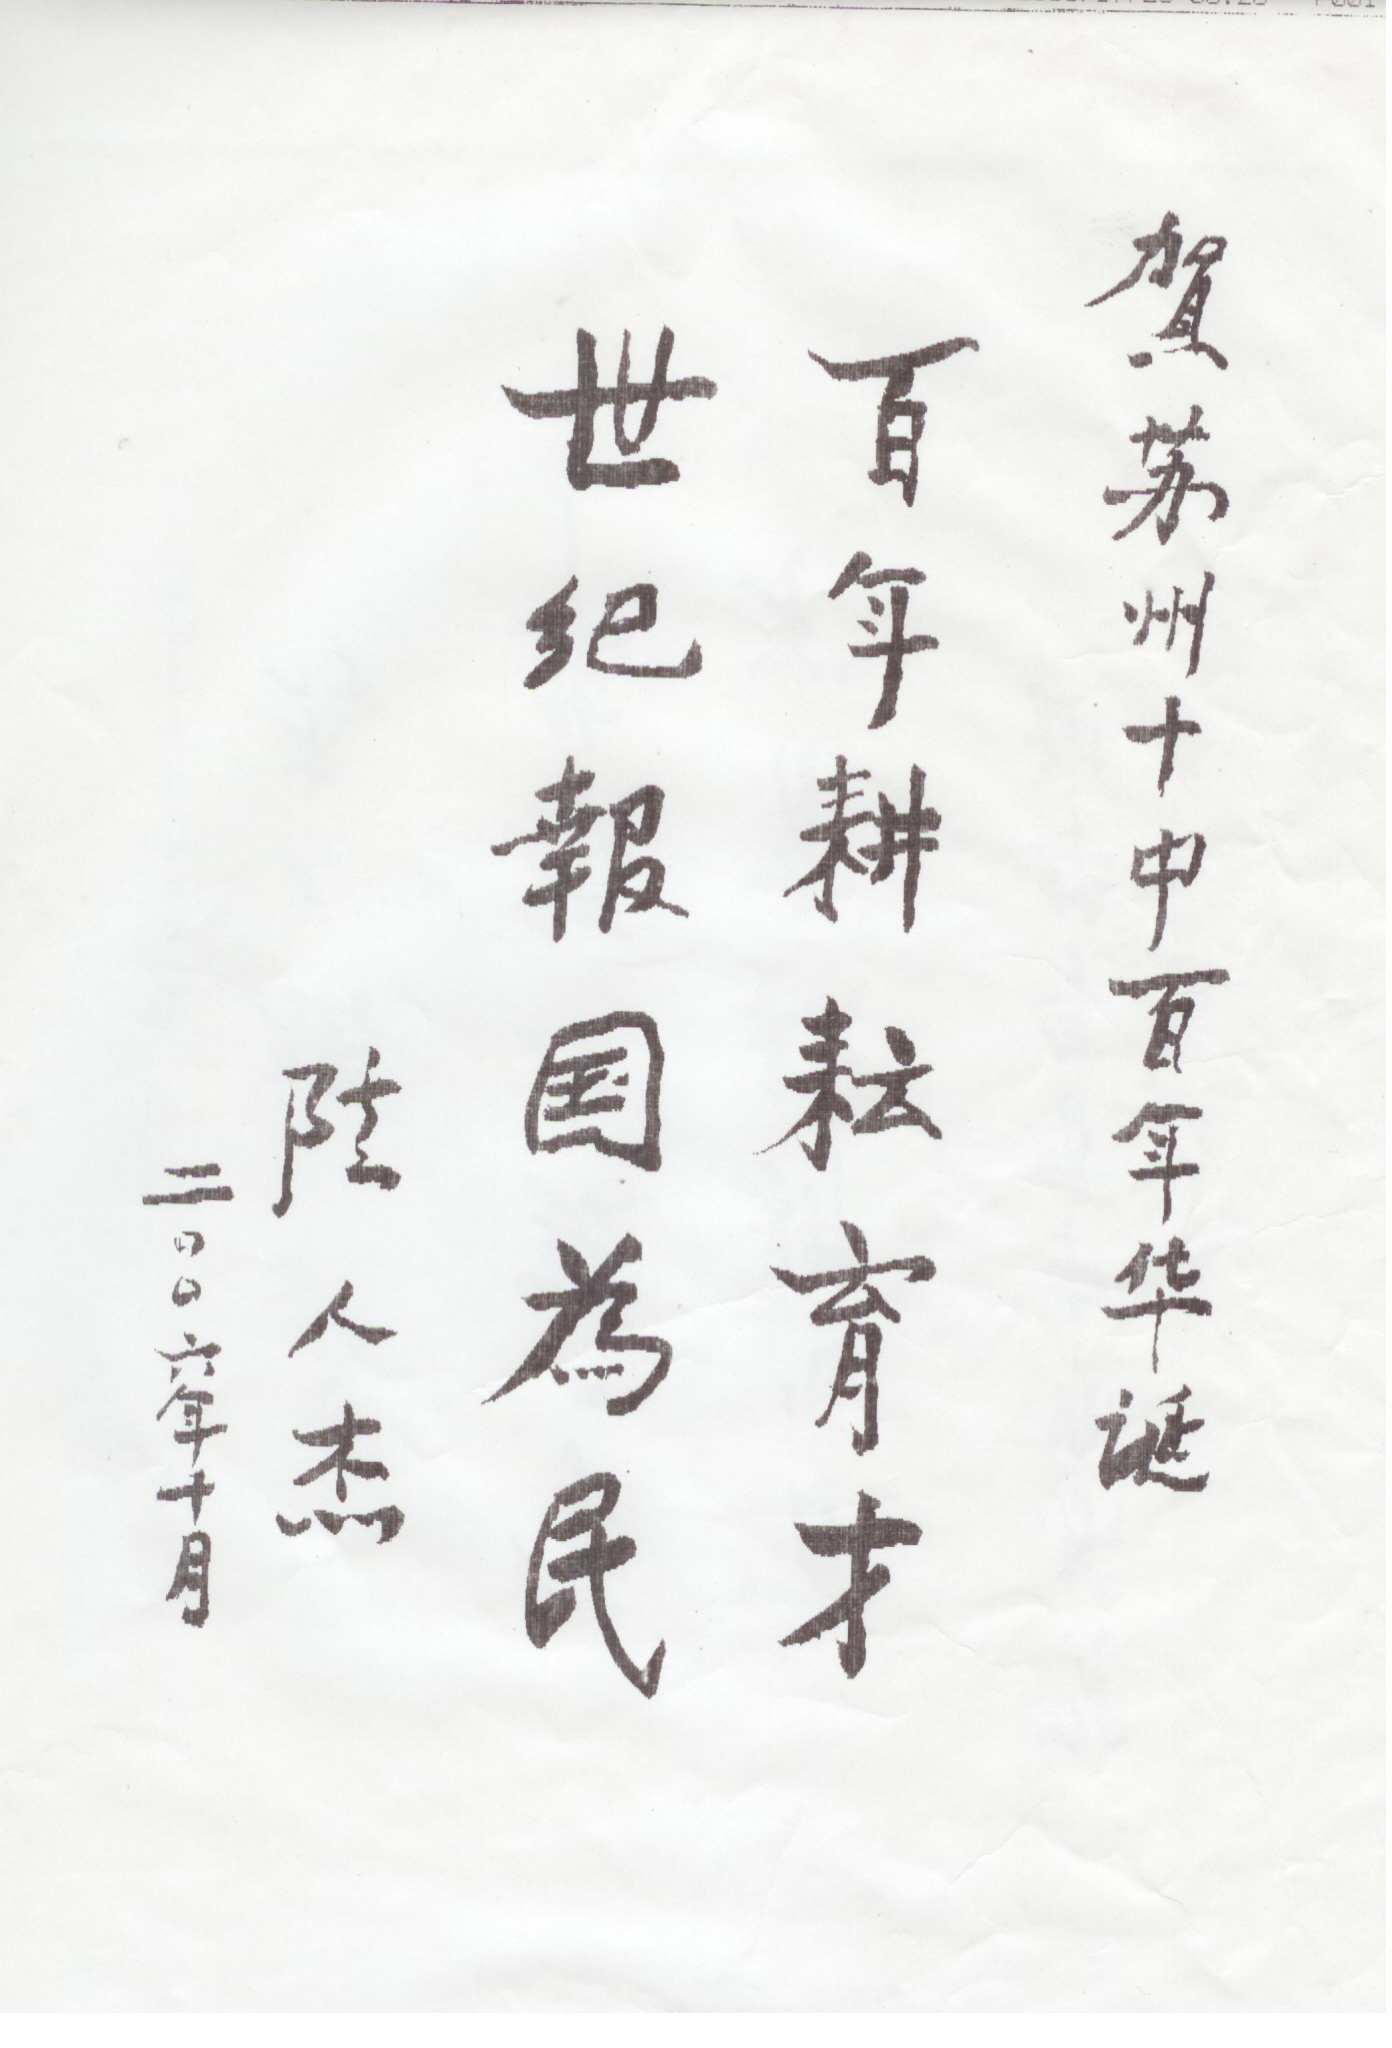 贺苏州十中百年华诞
百年耕耘育才
世纪報国為民
陆人杰
二〇〇六年十月